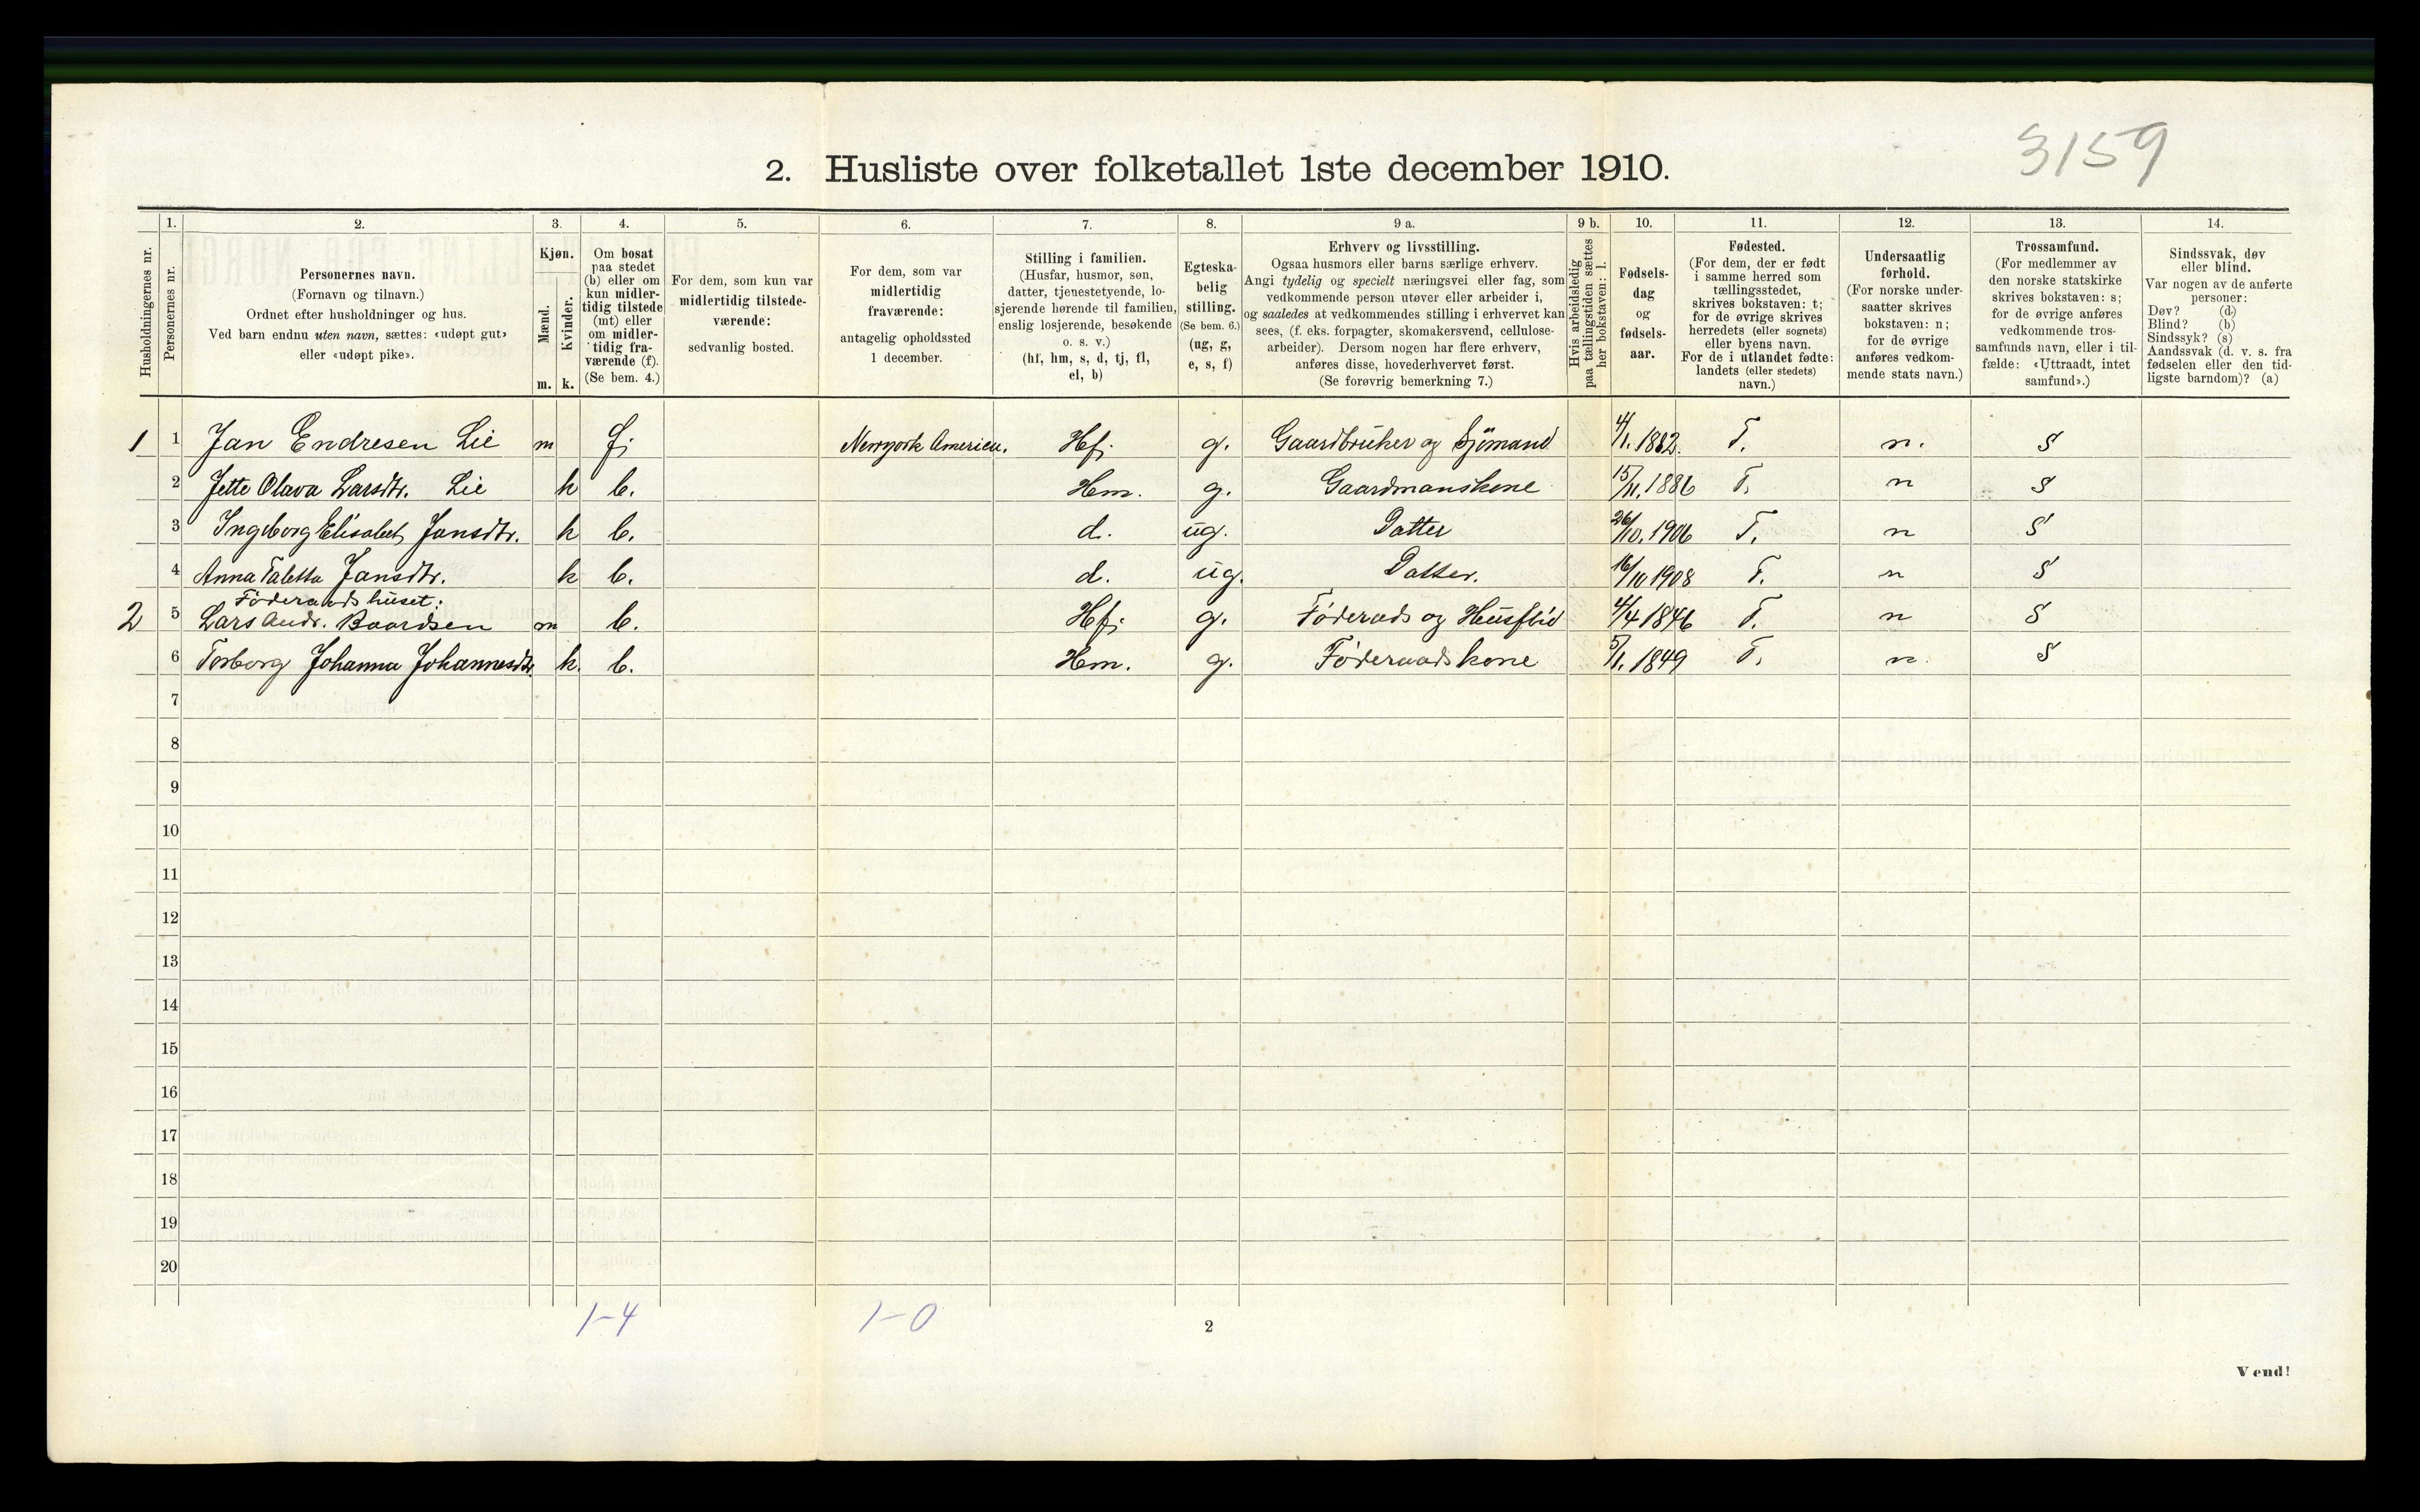 3159
2. Husliste over folketallet 1ste december 1910.
Husholdningernes nr.
1.
Personernes nr.
2.
Personernes navn.
(Fornavn og tilnavn.)
Ordnet efter husholdninger og hus.
Ved barn endnu uten navn, sættes: «udøpt gut»
eller «udøpt pike».
3.
Kjøn.
Mænd.
Kvinder.
m. k.
4.
Om bosat
paa stedet
(b) eller om
kun midler-
tidig tilstede
(mt) eller
om midler-
tidig fra-
værende (f).
(Se bem. 4.)
5.
For dem, som kun var
midlertidig tilstede-
værende:
sedvanlig bosted.
6.
For dem, som var
midlertidig
fraværende:
antagelig opholdssted
1 december.
7.
Stilling i familien.
(Husfar, husmor, søn,
datter, tjenestetyende, lo-
sjerende hørende til familien,
enslig losjerende, besøkende
o. s. v.)
(hf, hm, s, d, tj, fl,
el, b)
8.
Egteska-
belig
stilling.
(Se bem. 6.)
(ug, g,
e, s, f)
9 a.
Erhverv og livsstilling.
Ogsaa husmors eller barns særlige erhverv.
Angi tydelig og specielt næringsvei eller fag, som
vedkommende person utøver eller arbeider i,
og saaledes at vedkommendes stilling i erhvervet kan
sees, (f. eks. forpagter, skomakersvend, cellulose-
arbeider). Dersom nogen har flere erhverv,
anføres disse, hovederhvervet først.
(Se forøvrig bemerkning 7.)
9 b.
Hvis arbeidsledig
paa tællingstiden sættes
her bokstaven: l.
10.
Fødsels-
dag
og
fødsels-
aar.
11.
Fødested.
(For dem, der er født
i samme herred som
tællingsstedet,
skrives bokstaven: t;
for de øvrige skrives
herredets (eller sognets)
eller byens navn.
For de i utlandet fødte:
landets (eller stedets)
navn.)
12.
Undersaatlig
forhold.
(For norske under-
saatter skrives
bokstaven: n;
for de øvrige
anføres vedkom-
mende stats navn.)
13.
Trossamfund.
(For medlemmer av
den norske statskirke
skrives bokstaven: s;
for de øvrige anføres
vedkommende tros-
samfunds navn, eller i til-
fælde: «Uttraadt, intet
samfund».)
14.
Sindssvak, døv
eller blind.
Var nogen av de anførte
personer:
Døv? (d)
Blind? (b)
Sindssyk? (s)
Aandssvak (d. v. s. fra
fødselen eller den tid-
ligste barndom)? (a)
1 1 Jan Endresen Lie m f. Newyork America. Hf. g. Gaardbruker og Sjömand 4/1. 1882. T. n. S
2 Jette Olava Larsdtr. Lie k b. Hm. g. Gaardmanskone 15/11. 1886 T. n S
3 Ingeborg Elisabet Jansdtr. k b. d. ug. Datter 26/10. 1906 T. n S
4 Anna Taletta Jansdtr. k b. d. ug. Datter. 16/10 1908 T. n S
Föderaadshuset:
2 5 Lars Andr. Baardsen m b. Hf. g. Föderaads og Husflid 4/4 1846 T. n S
6 Torborg Johanna Johannesdtr. k. b. Hm. g. Föderaadskone 5/1. 1849 T. n. S
7
8
9
10
11
12
13
14
15
16
17
18
19
20
1-4 1-0
2
Vend!